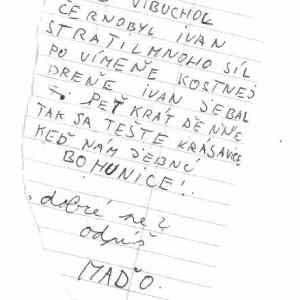 VIBUCHOL
ČERNOBYL IVAN
STRATIL MNOHO SÍL
PO VÍMEŇE KOSTNEJ
DREŇE IVAN JEBAL
PEŤ KRÁT DĚNŇE
TAK SA TEŠTE KRÁSAVICE
KEĎ NÁM JEBNÚ
BOHUNICE!
dobré než
odpíš
MAĎO.